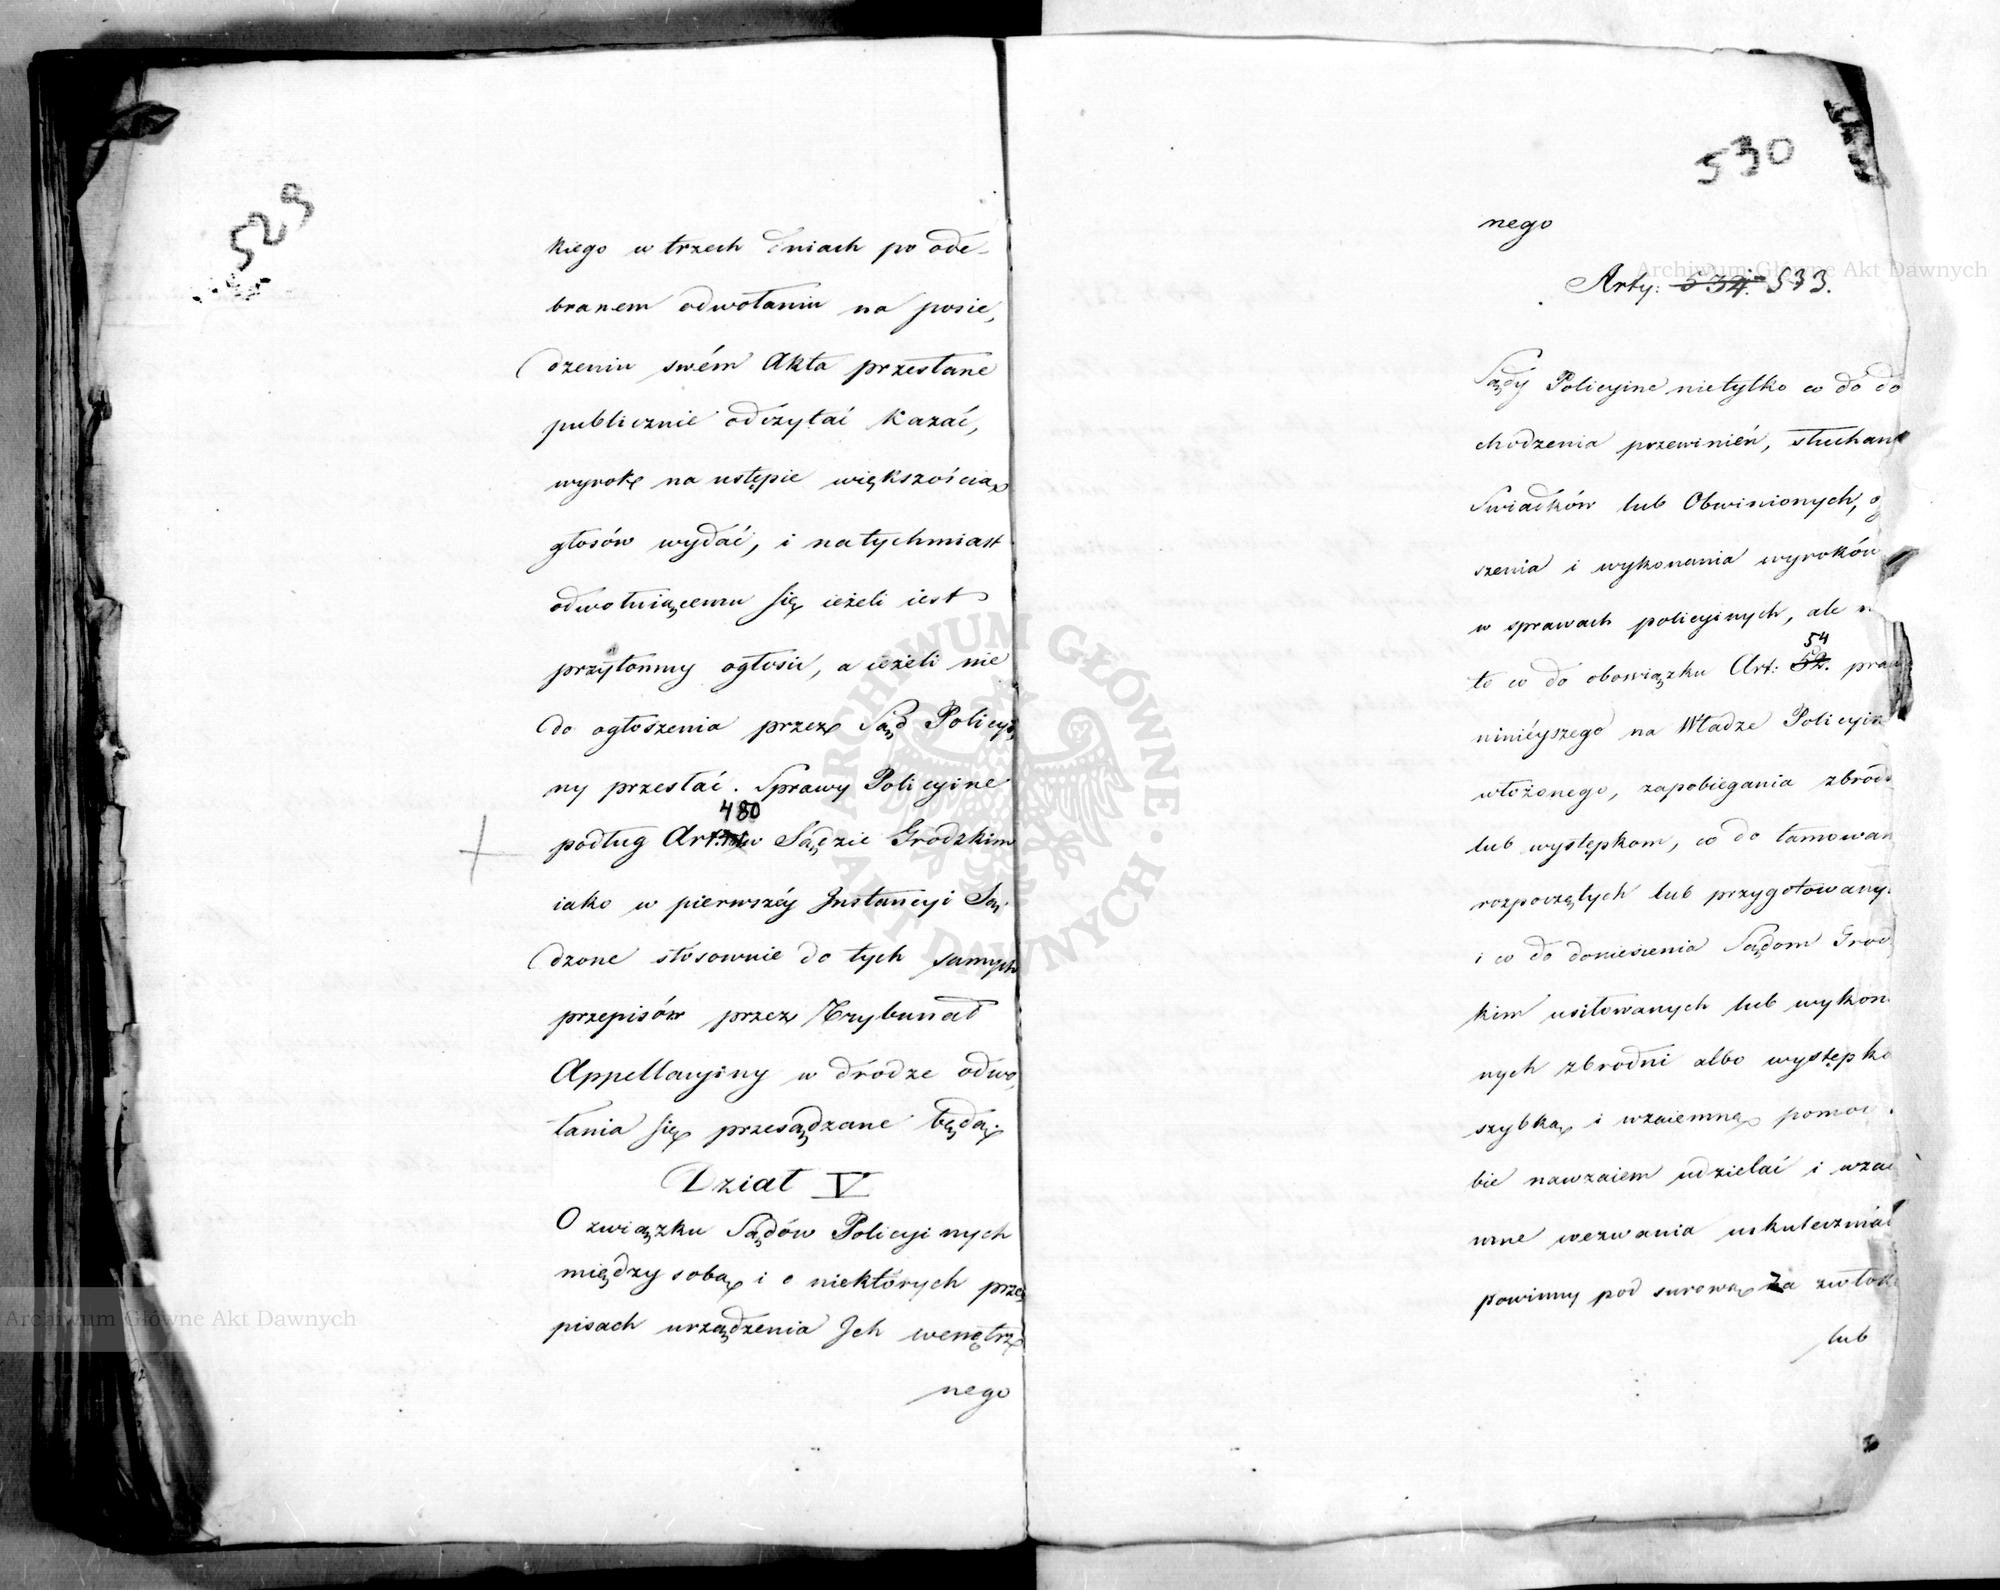 529
kiego w trzech dniach po ode-
branem odwołaniu na posie,
dzeniu swém Akta przesłane
publicznie odczytać kazać,
wyrok na ustępie większością
głosów wydać, i natychmiast
odwołuiącemu się ieżeli iest
przytomny ogłosić, a ieżeli nie
do ogłoszenia przez Sąd Policyi,
ny przesłać. Sprawy Policyine
480
podług Art: w Sądzie Grodzkim
iako w pierwszéj Instancyi Są,
dzone stósownie do tych samych
przepisów przez Trybunał
Appellacyiny w drodze odwo,
łania się przesądzane będą.
Dział V
O związku Sądów Policyinych
między sobą i o niektórych prze,
pisach urządzenia Ich wenętrz,
nego
530
nego
Arty: 534. 533.
Sądy Policyine nietylko co do do
chodzenia przewinień, słuchan
Swiadków lub Obwinionych, o
szenia i wykonania wyroków
w sprawach policyinych, ale n
54
to co do obowiązku Art: 52. praw
ninieyszego na Władze Policyin
włożonego, zapobiegania zbrod
lub występkom, co do tamowan
rozpoczętych lub przygotowany
i co do doniesienia Sądom Grod
kim usiłowanych lub wykon
nych zbrodni albo występkó
szybką i wzaiemną pomoc
bie nawzaiem udzielać i wza
mne wezwania uskuteczniać
powinny pod surową za zwłok
lub
Archiwum Główne Akt Dawnych
Archiwum Główne Akt Dawnych
ARCHIWUM GŁÓWNE · AKT DAWNYCH ·